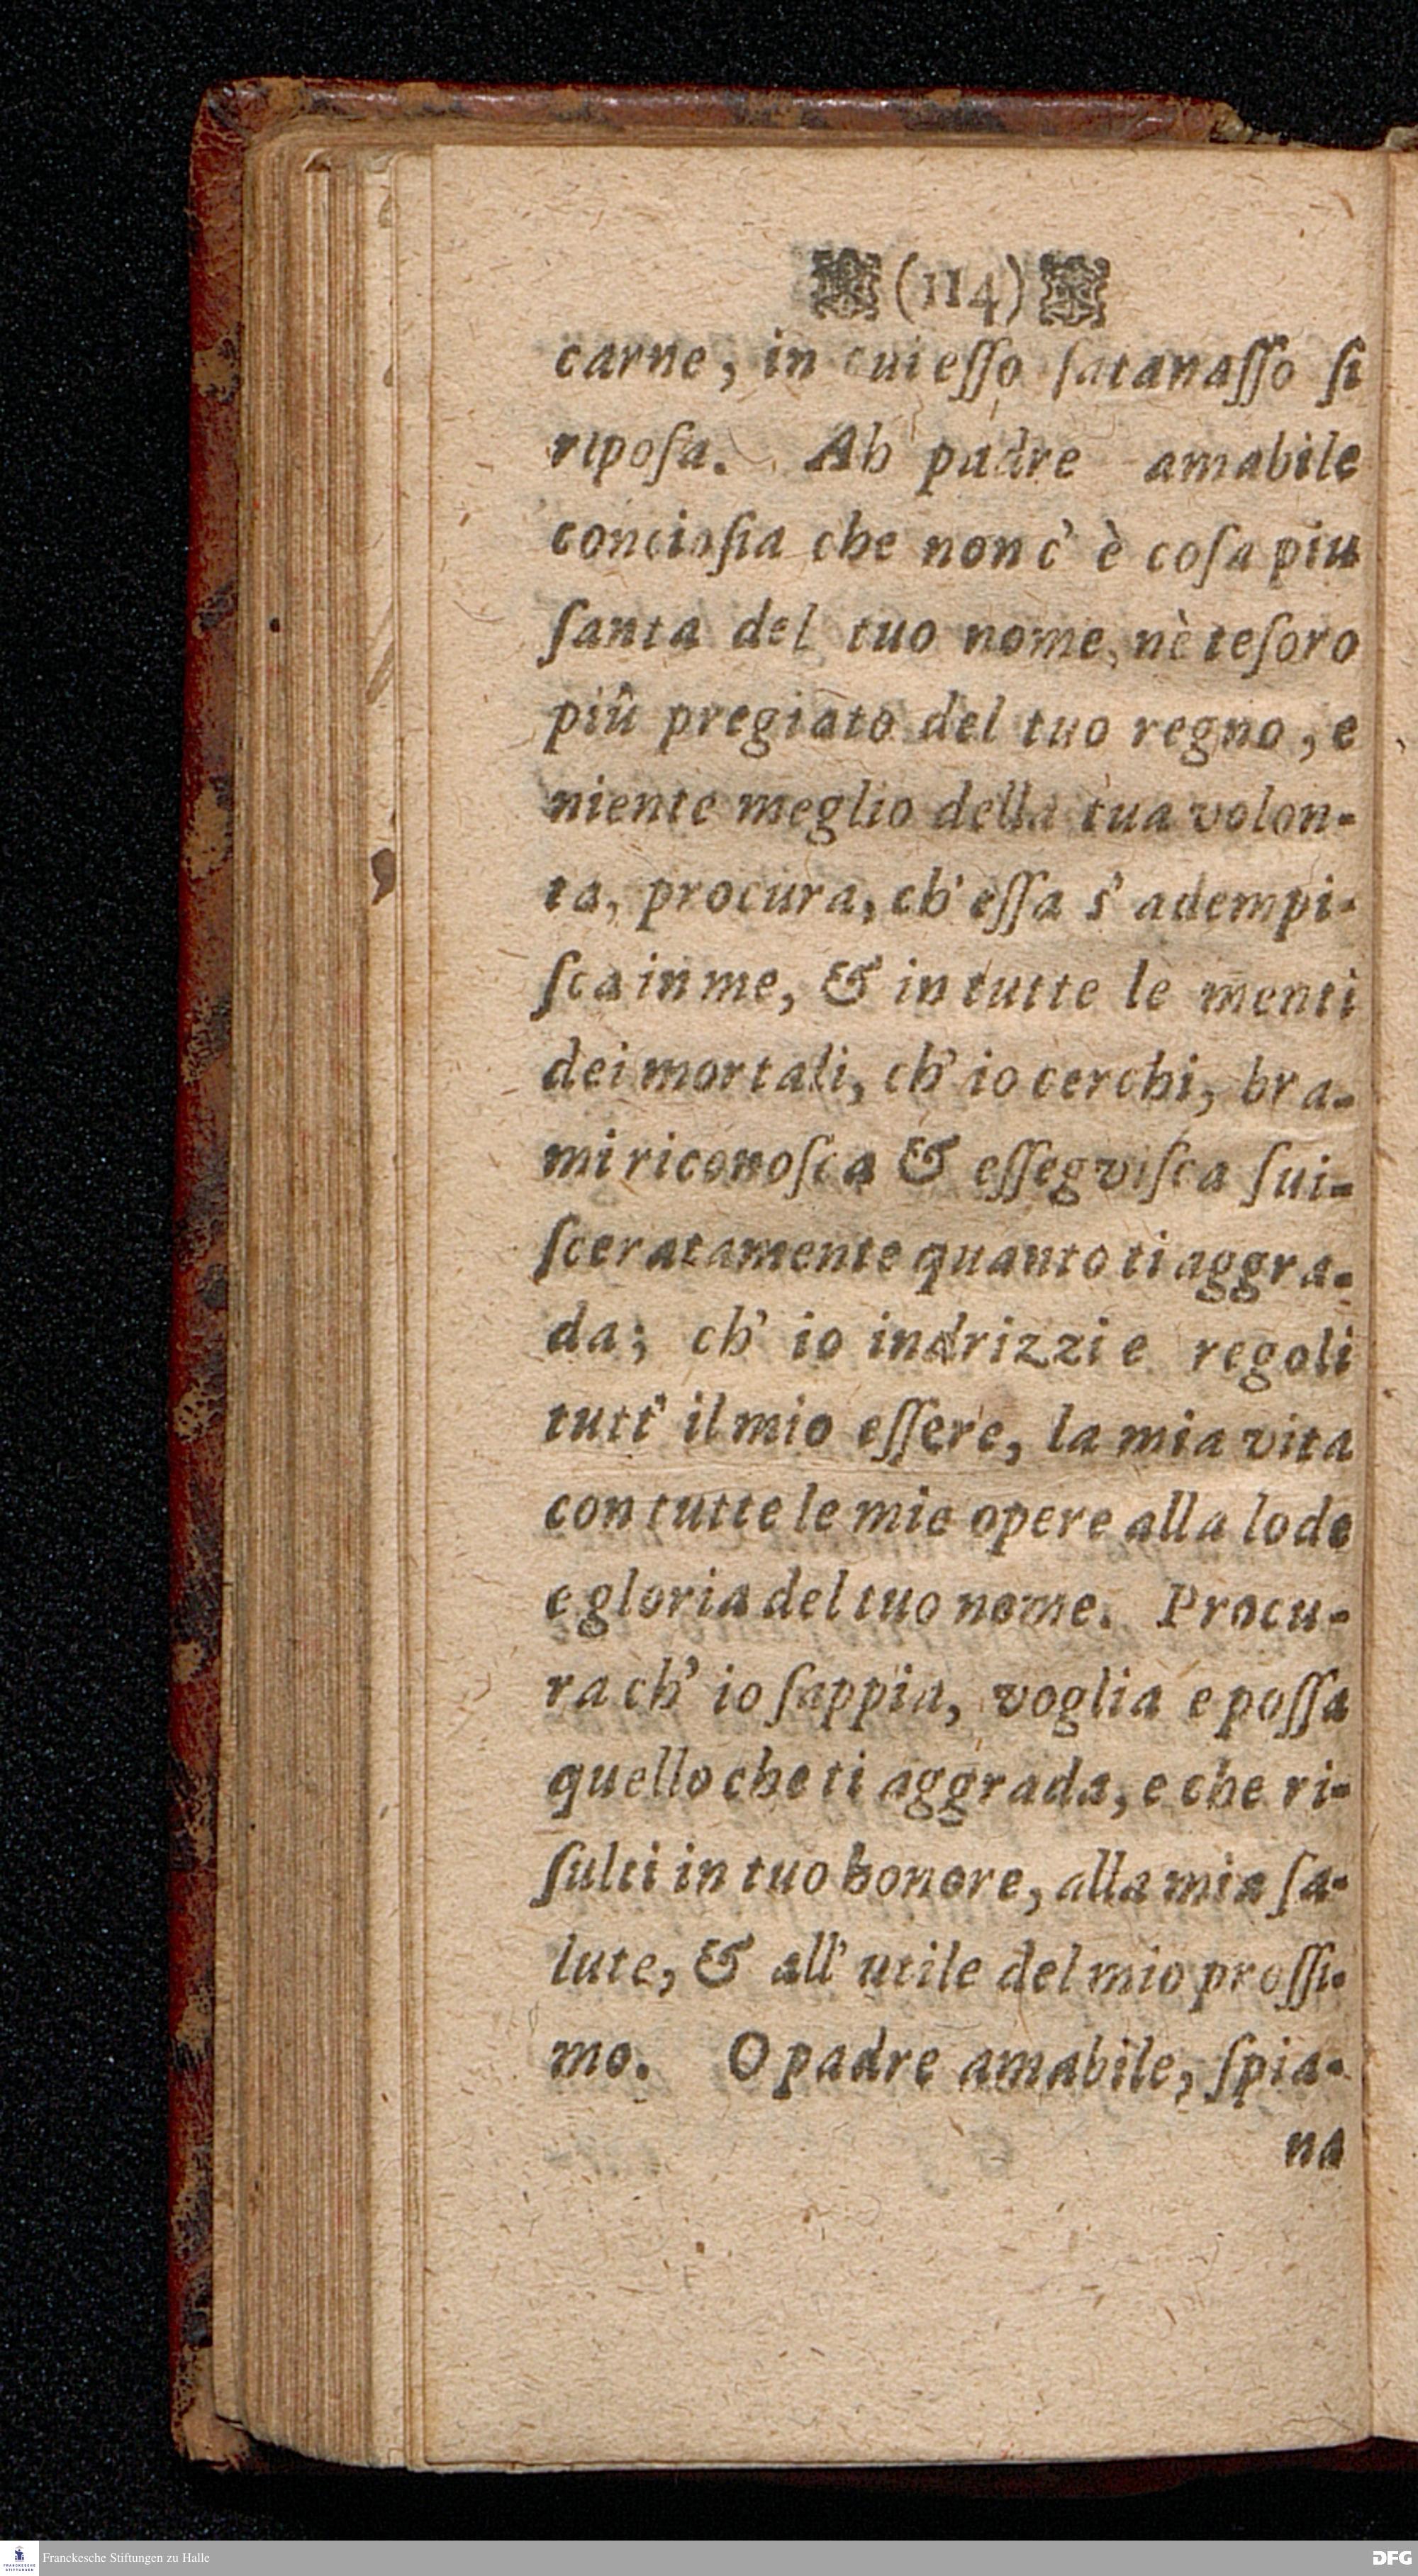 (114)
carne, in cui eſſo ſatanaſſo ſi
ripoſa. Ah padre amabile
conciosſia che non c' è coſa piu
ſanta del tuo nome, nè teſoro
piû pregiato del tuo regno, e
niente meglio della tua volon-
ta, procura, ch' eſſa s' adempi-
ſca in me, & in tutte le menti
dei mortali, ch' io cerchi, bra-
mi riconoſca & eſſegviſca ſui-
ſceratamente quanto ti aggra-
da; ch' io indrizzi e regoli
tutt' il mio eſſere, la mia vita
con tutte le mie opere alla lode
e gloria del tuo nome. Procu-
ra ch' io ſappia, voglia e poſſa
quello che ti aggrada, e che ri-
ſulti in tuo honore, alla mia ſa-
lute, & all' utile del mio proſſi-
mo. O padre amabile, ſpia-
na
Franckesche Stiftungen zu Halle
DFG